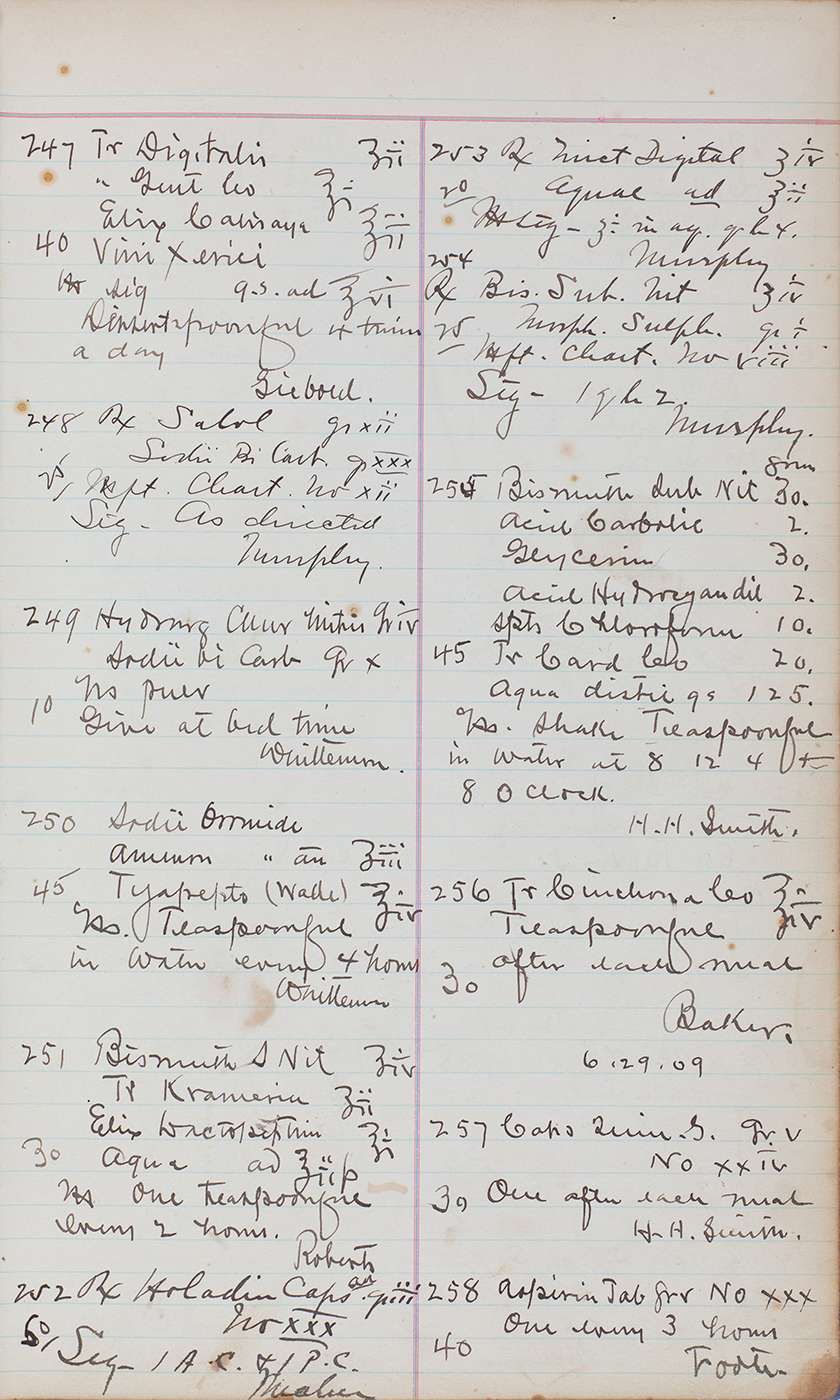 247 Tr Digitalis ʒii
" Gent Co ʒi
Elix Calisaya ʒii
40 Vini Xerici
Ms Sig q.s. ad ʒvi
Dessertspoonful 4 times
a day
Giebord.
248 Rx Salol grs xii
Sodii Bi Carb. grs xxx
25/ Mft. Chart. No xii
Sig - As directed
Murphy.
249 Hydrarg Chlor Mitis Gr iv
Sodii bi Carb Gr x
Ms pulv
10 Give at bed time
Whittemore.
250 Sodii Bromide
Ammon " aa ʒiii
45 Tyapepto (Wade) ʒiv
Ms. Teaspoonful
in Water every 4 hours
Whittemore
251 Bismuth S Nit ʒiv
Tr Krameria ʒii
Elix Lactopeptin ʒi
30 Aqua ad ʒii
Ms One teaspoonful
every 2 hours.
Roberts
252 Rx Holadin Caps aa gr iii
No XXX
60/ Sig - 1 A.C. & 1 P.C.
253 Rx Tinct Digital ʒiv
20 Aquae ad ʒii
M Sig - ʒi in aq. q h 4.
Murphy
254
Rx Bis. Sub. Nit ʒiv
25 Morph. Sulph. gr i
Mft. Chart. No viii
Sig - 1 q h 2.
Murphy.
gm
255 Bismuth Sub Nit 30.
Acid Carbolic 2.
Glycerin 30.
Acid Hydrocyan dil 2.
Spts Chloroform 10.
45 Tr Card Co 20.
Aqua distil qs 125.
Ms. Shake Teaspoonful
in water at 8 12 4 +
8 O Clock.
H.H. Smith.
256 Tr Cinchona Co ʒiv
Teaspoonful
after each meal
30
Baker.
6.29.09
257 Caps Quin. S. Gr. v
No xxiv
30 One after each meal
H.H. Smith.
258 Aspirin Tab gr v No xxx
One every 3 hours
40
Foote